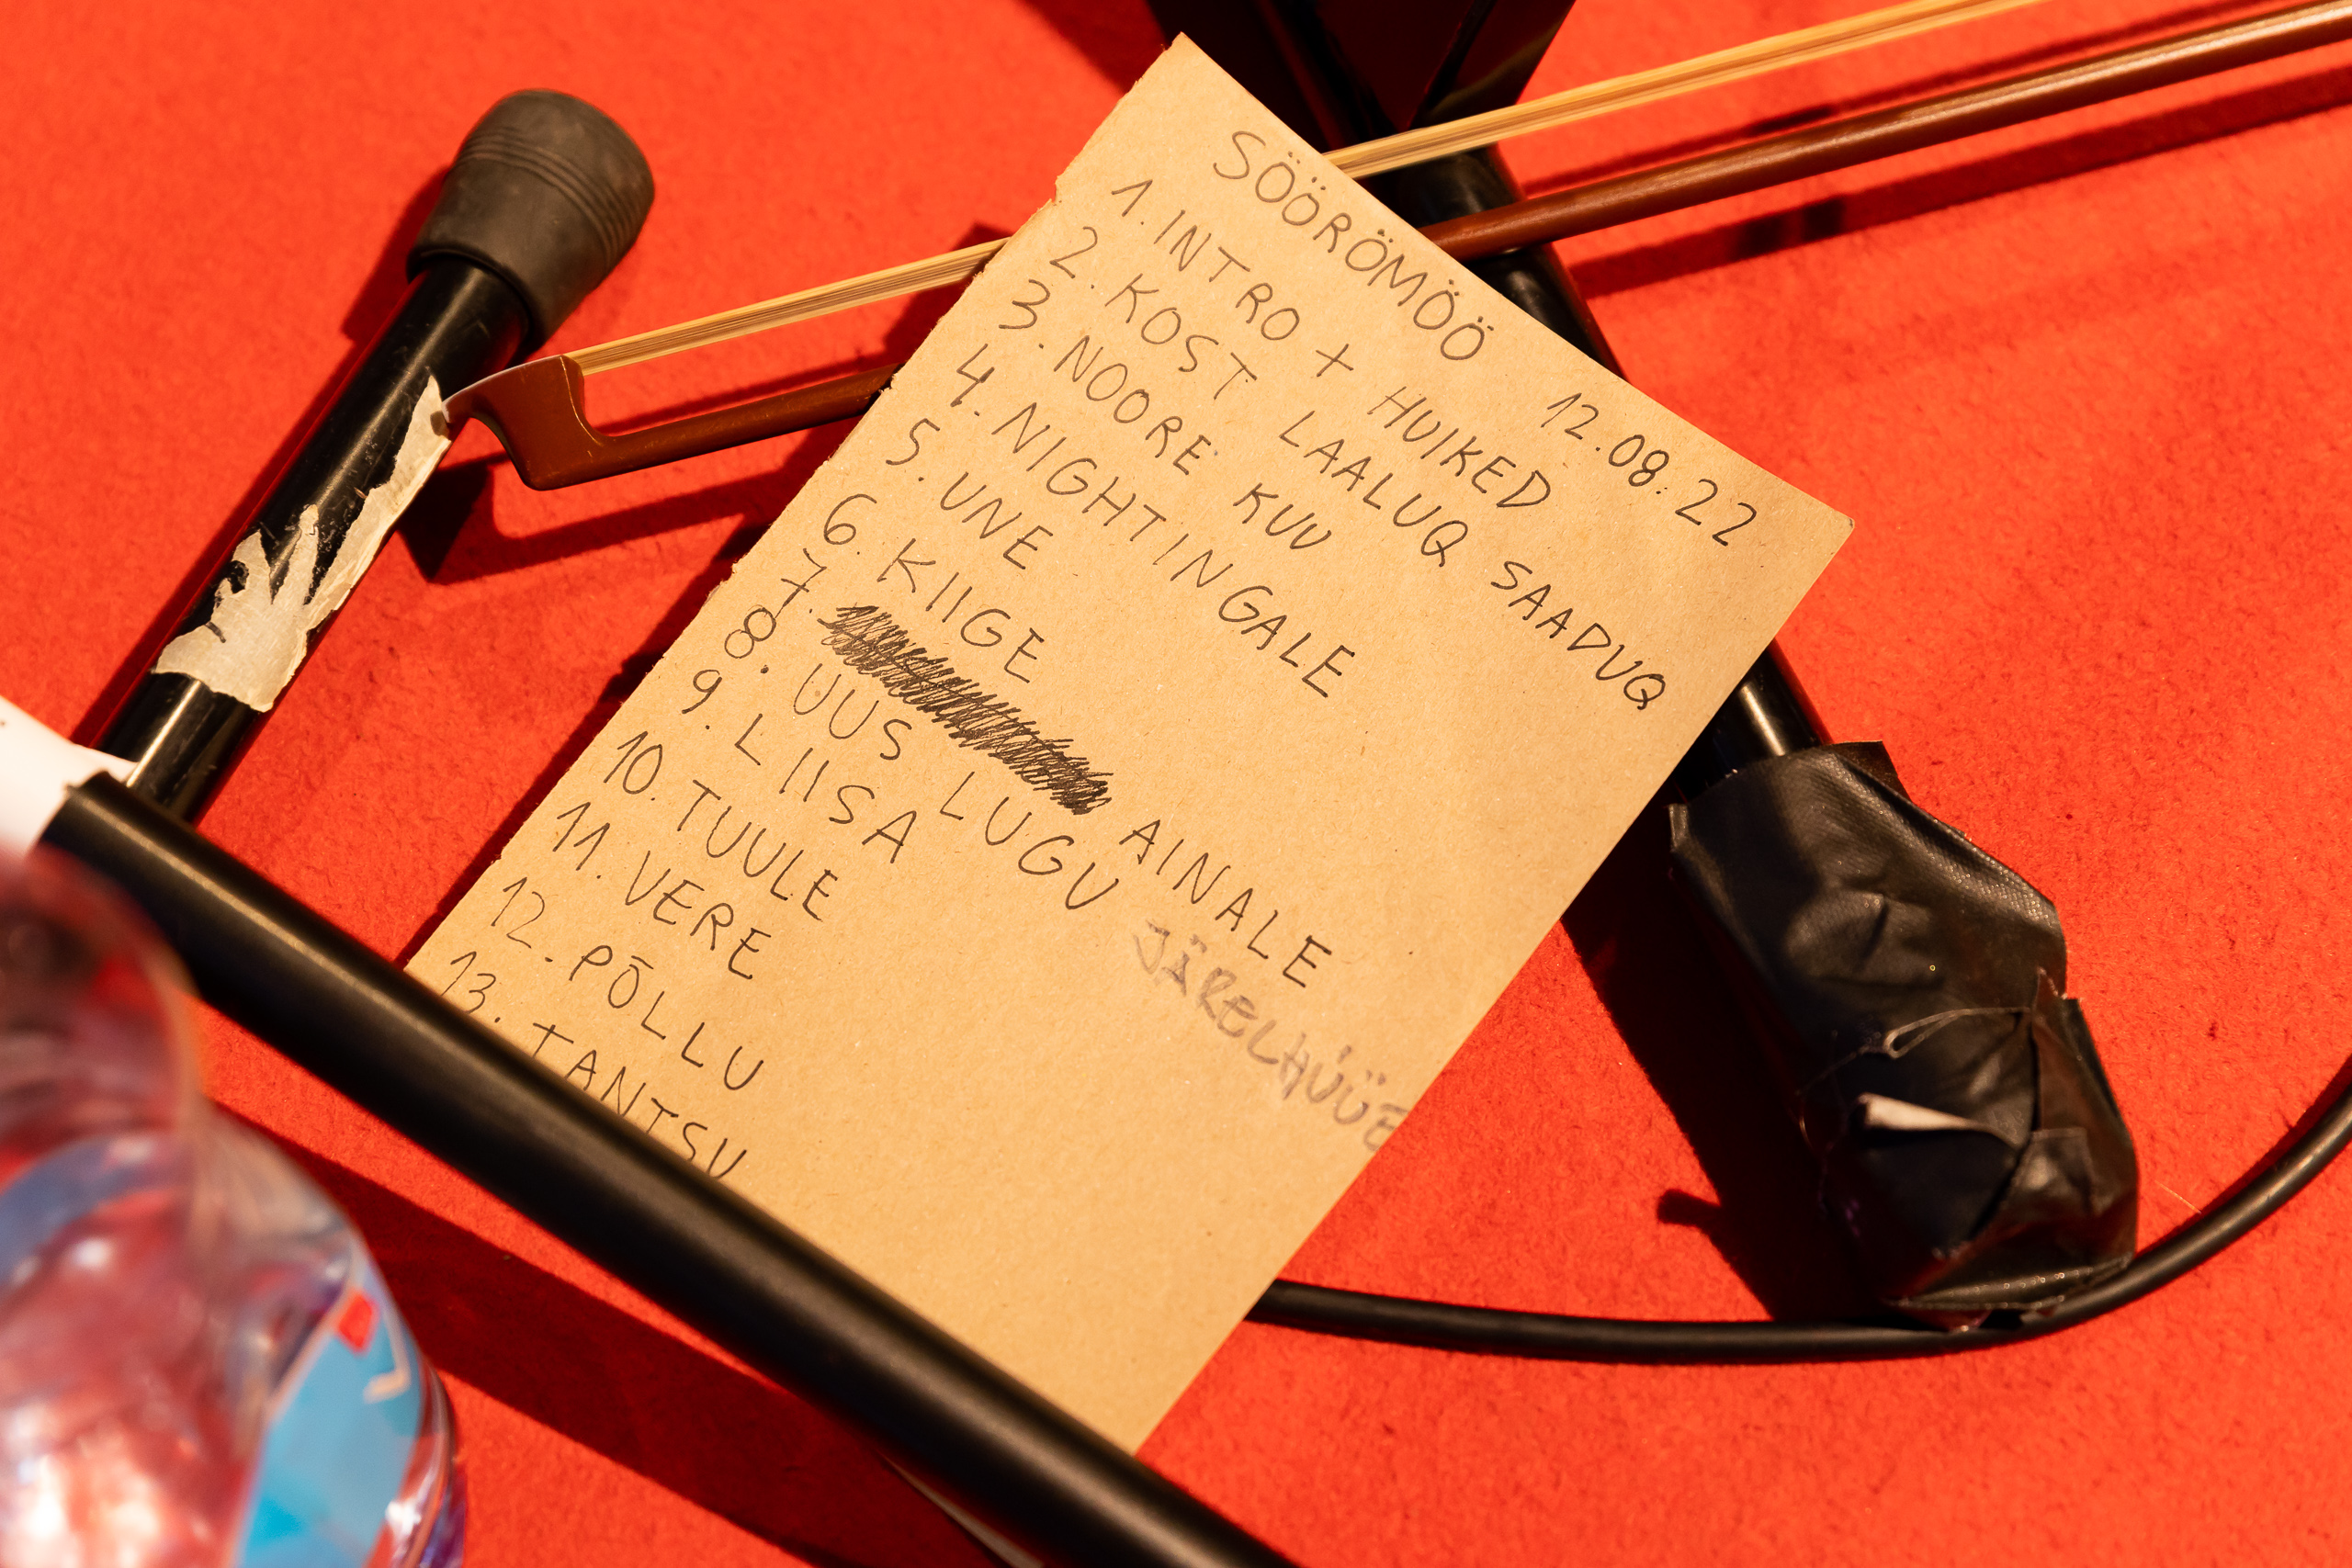 SÖÖRÖMÖÖ 12.08.22
1. INTRO + HUIKED
2. KOST LAALUQ SAADUQ
3. NOORE KUU
4. NIGHTINGALE
5. UNE
6. KIIGE
7. AINALE
8. UUS LUGU JÄRELHÜÜE
9. LIISA
10. TUULE
11. VERE
12. PÕLLU
13. TANTSU